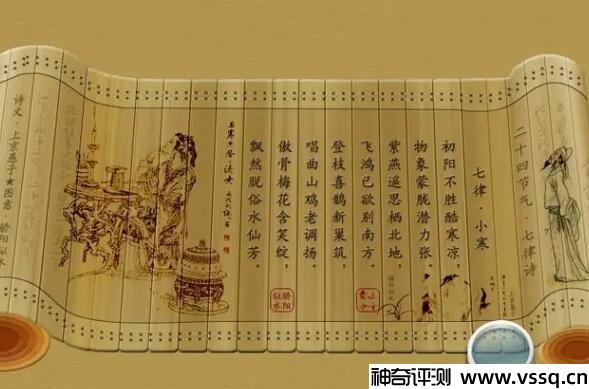 二十四节气·七律诗
七律·小寒
初阳不胜酷寒凉，
物象蒙胧潜力张。
紫燕遥思栖北地，
飞鸿已欲别南方。
登枝喜鹊新巢筑，
唱曲山鸡老调扬。
傲骨梅花含笑绽，
飘然脱俗水仙芳。
骄阳似水
诗文·上京愚子 图意·骄阳似水
神奇评测 www.vssq.cn